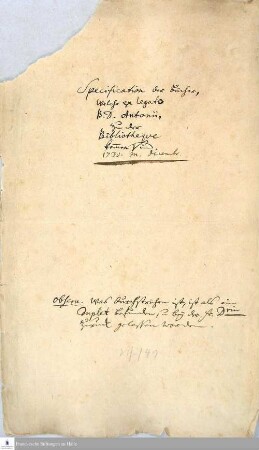 Specification der Bücher,
welche ex legato
B. D. Antonii,
zu der
Bibliotheque
kommen
173 m. Decembr
Observ. Was durchstrichen ist, ist als ein
Duplet befunden, u. bey der Fr.
zurück gelassen worden.
Franckesche Stiftungen zu Halle